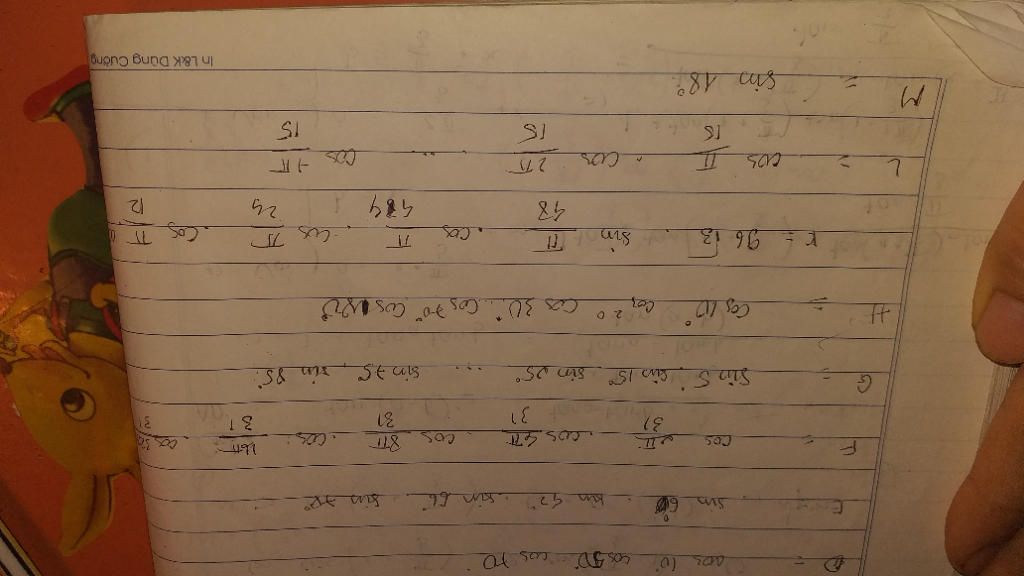 D = cos 10° cos 50° cos 70°
E = sin 6° . sin 42° . sin 66° . sin 78°
F = cos 2π/31 . cos 4π/31 . cos 8π/31 . cos 16π/31 . cos 32π/31
G = sin 5° . sin 15° . sin 25° ... sin 75° . sin 85°.
H = cos 10° cos 20 cos 30° ... cos 70° cos
K = 96 √3 . sin π/48 . cos π/48 . cos π/24 . cos π/12
L = cos π/15 . cos 2π/15 ... cos 7π/15
M = sin 18°.
In L&K Dũng Cường